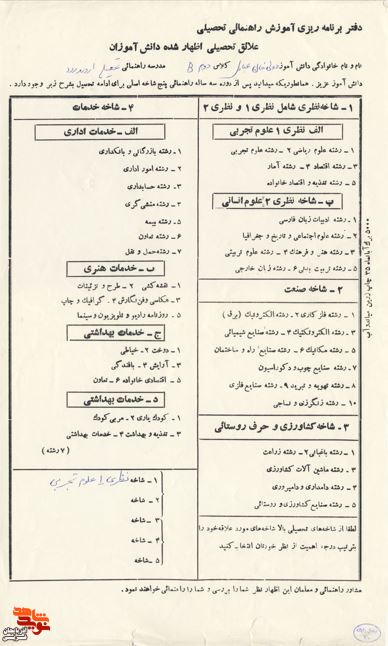 دفتر برنامه ریزی آموزش راهنمائی تحصیلی
علائق تحصیلی اظهار شده دانش آموزان
نام و نام خانوادگی دانش آموز کلاس دوم B مدرسه راهنمائی
دانش آموز عزیز . همانطوریکه میدانید پس از دوره سه ساله راهنمائی پنج شاخه اصلی برای ادامه تحصیل بشرح زیر وجود دارد .
۱ - شاخه نظری شامل نظری ۱ و نظری ۲
الف نظری ۱ علوم تجربی
۱ - رشته علوم ریاضی ۲ - رشته علوم تجربی
۳ - رشته اقتصاد ۴ - رشته آمار
۵ - رشته تغذیه و اقتصاد خانواده
ب - شاخه نظری ۲ علوم انسانی
۱ - رشته ادبیات زبان فارسی
۲ - رشته علوم اجتماعی و تاریخ و جغرافیا
۳ - رشته هنر و فرهنگ ۴ - رشته علوم تربیتی
۵ - رشته تربیت بدنی ۶ - رشته زبان خارجی
۲ - شاخه صنعت
۱ - رشته فلز کاری ۲ - رشته الکترونیک (برق)
۳ - رشته الکتروتکنیک ۴ - رشته صنایع شیمیائی
۵ - رشته مکانیک ۶ - رشته صنایع راه و ساختمان
۷ - رشته صنایع چوب و دکوراسیون
۸ - رشته تهویه و تبرید ۹ - رشته صنایع فلزی
۱۰ - رشته رنگرزی و نساجی
۳ - شاخه کشاورزی و حرف روستائی
۱ - رشته باغبانی ۲ - رشته زراعت
۳ - رشته ماشین آلات کشاورزی
۴ - رشته دامداری و دامپروری
۵ - رشته صنایع کشاورزی و روستائی
لطفا از شاخه‌های تحصیلی بالا شاخه‌های مورد علاقه خود را
بترتیب درجه اهمیت از نظر خودتان انتخاب کنید
۴ - شاخه خدمات
الف - خدمات اداری
۱ - رشته بازرگانی و بانکداری
۲ - رشته امور اداری
۳ - رشته حسابداری
۴ - رشته منشی گری
۵ - رشته بیمه
۶ - رشته تعاون
۷ - رشته حمل و نقل
ب - خدمات هنری
۱ - نقشه کشی ۲ - طرح و تزئینات
۳ - عکاسی وفن نگارش ۴ - گرافیک و چاپ
۵ - روزنامه رادیو و تلویزیون و سینما
ج - خدمات بهداشتی
۱ - دوخت ۲ - خیاطی
۳ - آرایش ۴ - بافندگی
۵ - اقتصادی خانواده ۶ - تعاون
د - خدمات بهداشتی
۱ - کودک یاری ۲ - مربی کودک
۳ - تغذیه و بهداشت ۴ - خدمات بهداشتی
(۷ رشته)
۱ - شاخه نظری ۱ علوم تجربی
۲ - شاخه
۳ - شاخه
۴ - شاخه
۵ - شاخه
مشاور راهنمائی و معلمان این اظهار نظر شما را بررسی و شما را راهنمائی خواهند نمود .
نوید شاهد